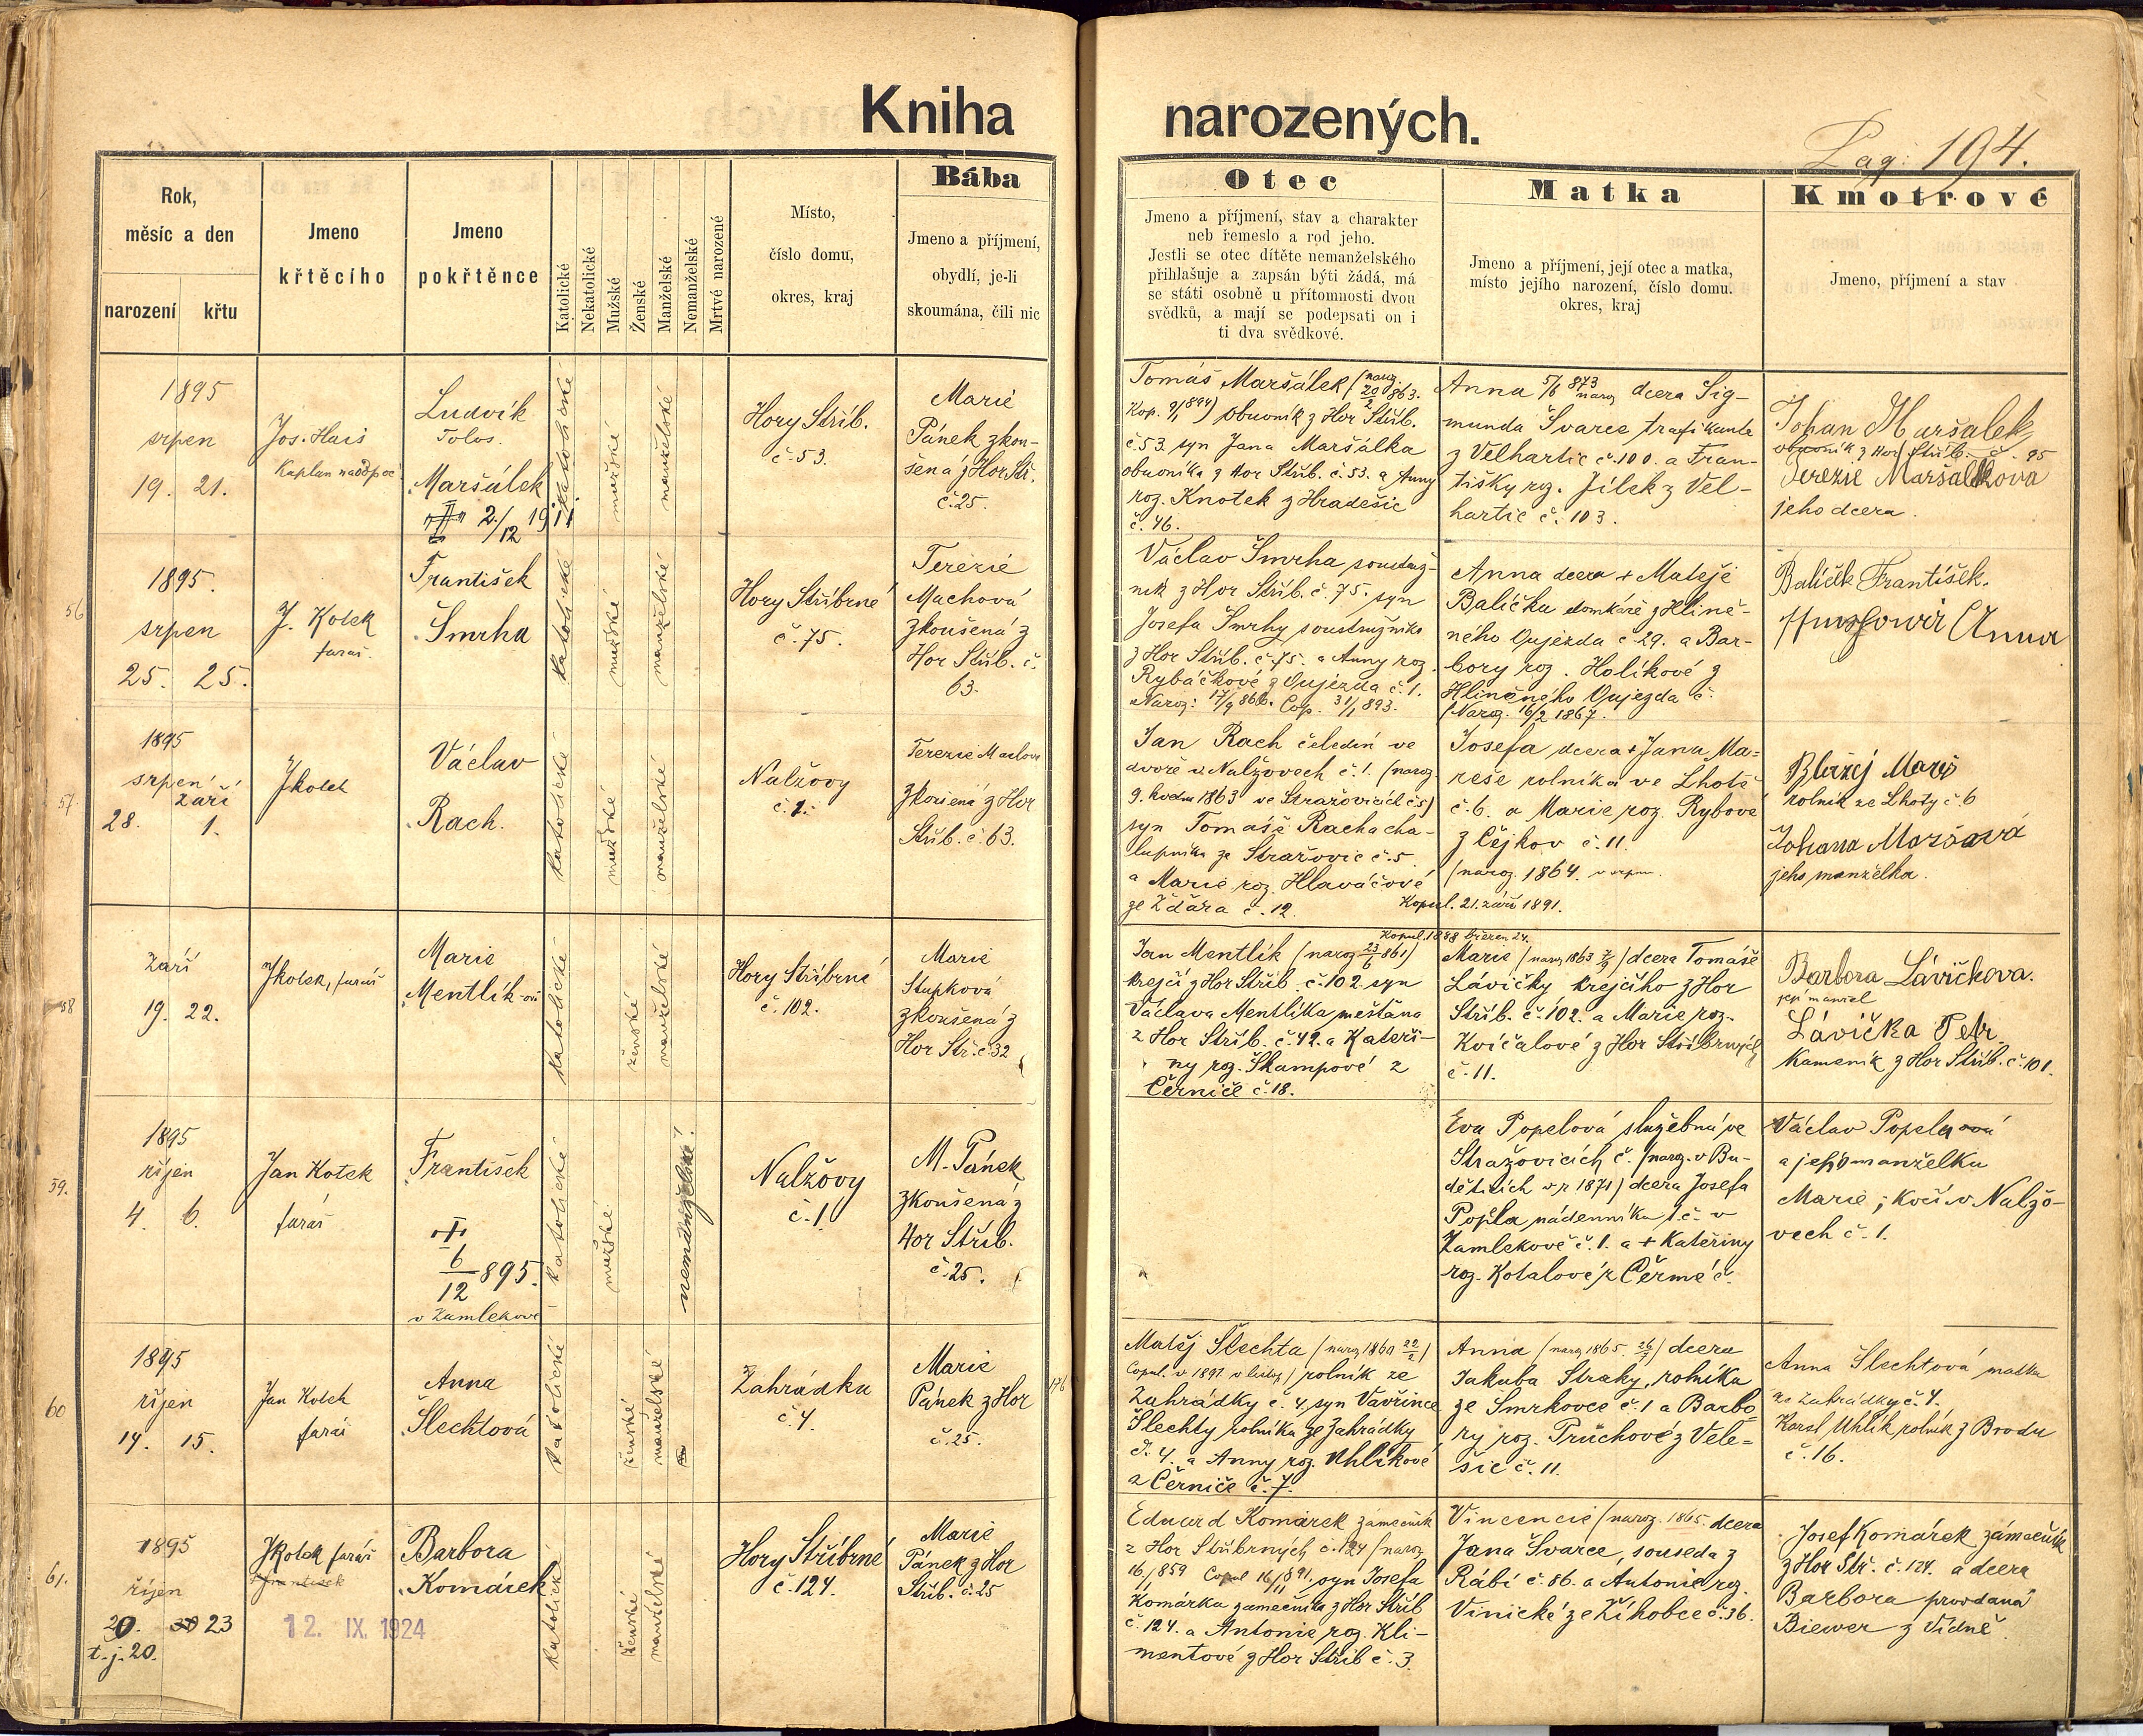 Kniha narozených.
Pag: 194.
Rok,
měsíc a den
narození
křtu
Jmeno
křtěcího
Jmeno
pokřtěnce
Katolické
Nekatolické
Mužské
Ženské
Manželské
Nemanželské
Mrtvé narozené
Místo,
číslo domu,
okres, kraj
Bába
Jmeno a příjmení,
obydlí, je-li
skoumána, čili nic
Otec
Jmeno a příjmení, stav a charakter
neb řemeslo a rod jeho.
Jestli se otec dítěte nemanželského
přihlašuje a zapsán býti žádá, má
se státi osobně u přítomnosti dvou
svědků, a mají se podepsati on i
ti dva svědkové.
Matka
Jmeno a příjmení, její otec a matka,
místo jejího narození, číslo domu.
okres, kraj
Kmotrové
Jmeno, příjmení a stav
1895
srpen
19. 21.
Jos. Hais
Kaplan
Ludvík
Maršálek
2./12 1911
katolické
mužské
manželské
Hory Stříb.
č. 53.
Marie
Pánek zkou-
šená z Hor Stř.
č. 25.
Tomáš Maršálek (naroz. 20/2 863.
Kop. 9/1 894) obuvník z Hor Stříb.
č. 53. syn Jana Maršálka
obuvníka z Hor Stříb. č. 53. a Anny
roz. Knotek z Hradešic
č. 46.
Anna 5/6 873 naroz dcera Sig-
munda Švarce trafikanta
z Velhartic č. 100. a Fran-
tišky roz. Jílek z Vel-
hartic č. 103.
Johan Maršalek
obuvník z Hor Stříb. č. 95
Terezie Maršalkova
jeho dcera.
56
1895.
srpen
25. 25.
J. Kotek
farář.
František
Šmrha
katolické
mužské
manželské
Hory Stříbrné
č. 75.
Terezie
Machová
zkoušená z
Hor Stříb. č.
63.
Václav Šmrha soustruž-
ník z Hor Stříb. č. 75. syn
Josefa Šmrhy soustružníka
z Hor Stříb. č. 75. a Anny roz.
Rybáčkové z Oujezda č. 1.
Naroz: 17/9 866. Cop. 31/1 893.
Anna dcera + Matěje
Balíčka domkáře z Hlině-
ného Oujezda č. 29. a Bar-
bory roz. Holíkové z
Hliněného Oujezda č.
(Naroz. 16/2 1867.
Balíček František.
Anna
57.
1895
srpen září
28. 1.
JKotek
Václav
Rach.
katolické
mužské
manželské
Nalžovy
č. 1.
Terezie Machová
zkoušená z Hor
Stříb. č. 63.
Jan Rach čeledín ve
dvoře v Nalžovech č. 1. (naroz.
9. 1863 ve Stražovicích č. 5)
syn Tomáše Racha cha-
lupníka ze Stražovic č. 5.
a Marie roz. Hlaváčové
ze Ždára č. 12.
Josefa dcera + Jana Ma-
reše rolníka ve Lhotě
č. 6. a Marie roz. Rybové
z Čejkov č. 11.
(naroz. 1864. v srpnu.
Kopul. 21. září 1891.
Blažej Mareš
rolník ze Lhoty č 6
Johana Marešová
jeho manželka.
58
Září
19. 22.
JKotek, farář
Marie
Mentlík-ová
katolické
ženské
manželské
Hory Stříbrné
č. 102.
Marie
Stupková
zkoušená z
Hor Stř. č. 32
Kopul. 1888 březen 24.
Jan Mentlík (naroz 23/6 861)
krejčí z Hor Stříb. č. 102. syn
Václava Mentlíka měšťana
z Hor Stříb. č. 42. a Kateři-
ny roz. Škampové z
Černiče č. 18.
Marie (naroz 1863) dcera Tomáše
Lávičky krejčího z Hor
Stříb. č. 102. a Marie roz.
Kvíčalové z Hor Stříbrných
č. 11.
Barbora Lávičkova.
její manžel
Lávička Petr
Kameník z Hor Stříb. č. 101.
59.
1895
říjen
4. 6.
Jan Kotek
farář
František
+
6/12 895.
v Zamlekově
katolické
mužské
nemanželské!
Nalžovy
č. 1.
M. Pánek
zkoušená z
Hor Stříb.
č. 25.
Eva Popelová služebná ve
Stražovicích č. (naroz. v Bu-
děticích v r 1871) dcera Josefa
Popla nádenníka t. č. v
Zamlekově č. 1. a + Kateřiny
roz. Kotalové z Čermé č.
Václav Popela
a jeho manželka
Marie, kočí v Nalžo-
vech č. 1.
60
1895
říjen
14. 15.
Jan Kotek
farář
Anna
Šlechtová
katolické
ženské
manželské
Zahrádka
č. 4.
Marie
Pánek z Hor
č. 25.
Matěj Šlechta (naroz 1860 22/2)
Copul. v 1891 v listop.) rolník ze
Zahrádky č. 4, syn Vavřince
Šlechty rolníka ze Zahrádky
č. 4. a Anny roz. Uhlíkové
z Černiče č. 7.
Anna (naroz 1865. 26/7) dcera
Jakuba Straky, rolníka
ze Smrkovce č. 1 a Barbo
ry roz. Průchové z Vele-
šic č. 11.
Anna Šlechtová matka
ze Zahrádky č. 4.
Karel Uhlík rolník z Brodu
č. 16.
61.
1895
říjen
20. 23
t. j. 20.
JKotek farář
František
12. IX. 1924
Barbora
Komárek
katolická
ženské
manželské
Hory Stříbrné
č. 124.
Marie
Pánek z Hor
Stříb. č. 25
Eduard Komárek zámečník
z Hor Stříbrných č. 124 (naroz
16/1 859 Copul 16/11 891. syn Josefa
Komárka zámečníka z Hor Stříb
č. 124. a Antonie roz. Kli-
mentové z Hor Stříb č. 3.
Vincencie (naroz. 1865. dcera
Jana Švarce, souseda z
Rábí č. 86. a Antonie roz.
Vinické ze Žíhobce č. 36.
Josef Komárek zámečník
z Hor Stř. č. 124. a dcera
Barbora provdaná
Biewer z Vídně